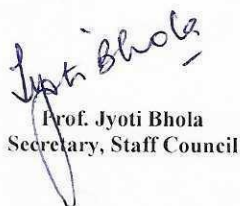 Jyoti Bhola
Prof. Jyoti Bhola
Secretary, Staff Council